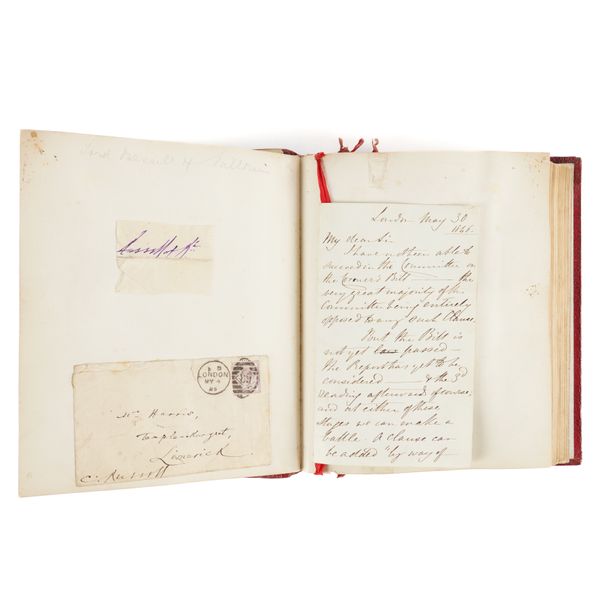 Lord Russell of Killowen
Russell of K.
LONDON
MY 4
Mr Harris,
Limerick
C. Russell
London May 30
1846.
My dear Sir
I have not been able to
succeed in the Committee on
the Bill — the
very great majority of the
Committee being entirely
opposed to any such Clause.
But the Bill is
not yet passed —
the Report has yet to be
considered — & the 3rd
reading afterwards of course;
and at either of these
stages we can make a
battle. A clause can
be added "by way of